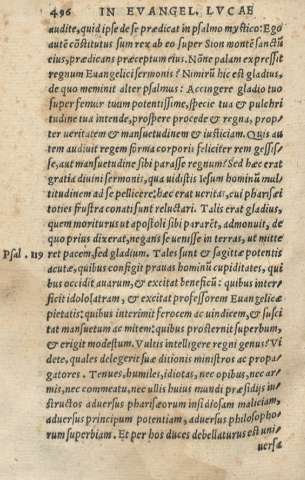 496 IN EVANGEL. LVCAE
audite, quid ipse de se prædicat in psalmo mystico: Ego
autē cōstitutus sum rex ab eo super Sion montē sanctū
eius, prædicans præceptum eius. Nōne palam expressit
regnum Euangelici sermonis? Nimirū hic est gladius,
de quo meminit alter psalmus: Accingere gladio tuo
super femur tuum potentissime, specie tua & pulchri
tudine tua intende, prospere procede & regna, prop-
ter ueritatem & mansuetudinem & iusticiam. Quis au
tem audiuit regem forma corporis feliciter rem gessis-
se, aut mansuetudine sibi parasse regnum? Sed hæc erat
gratia diuini sermonis, qua uidistis Iesum hominū mul
titudinem ad se pellicere: hæc erat ueritas, cui pharisæi
toties frustra conati sunt reluctari. Talis erat gladius,
quem moriturus ut apostoli sibi pararēt, admonuit, de
quo prius dixerat, negans se uenisse in terras, ut mitte
Psal. 119 ret pacem, sed gladium. Tales sunt & sagittæ potentis
acutæ, quibus configit prauas hominū cupiditates, qui
bus occidit auarum, & excitat beneficū: quibus inter-
ficit idololatram, & excitat professorem Euangelicæ
pietatis: quibus interimit ferocem ac uindicem, & susci
tat mansuetum ac mitem: quibus prosternit superbum,
& erigit modestum. Vultis intelligere regni genus? Vi
dete, quales delegerit suæ ditionis ministros ac propa-
gatores. Tenues, humiles, idiotas, nec opibus, nec ar-
mis, nec commeatu, nec ullis huius mundi præsidijs in
structos aduersus pharisæorum insidiosam maliciam,
aduersus principum potentiam, aduersus philosopho-
rum superbiam. Et per hos duces debellaturus est uni-
uersa